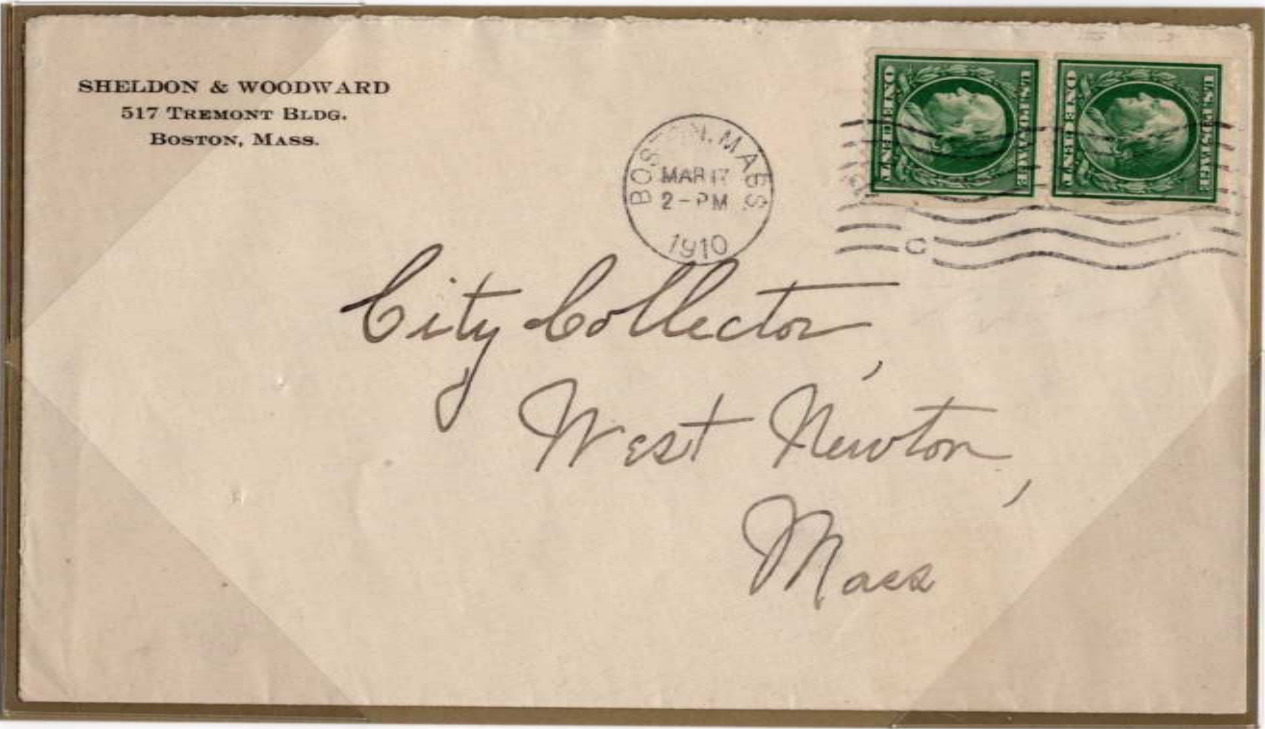 SHELDON & WOODWARD
517 TREMONT BLDG.
BOSTON, MASS.
BOSTON, MASS.
MAR 17
2 - PM
1910
C
U.S. POSTAGE
ONE CENT
U.S. POSTAGE
ONE CENT
City Collector,
West Newton,
Mass